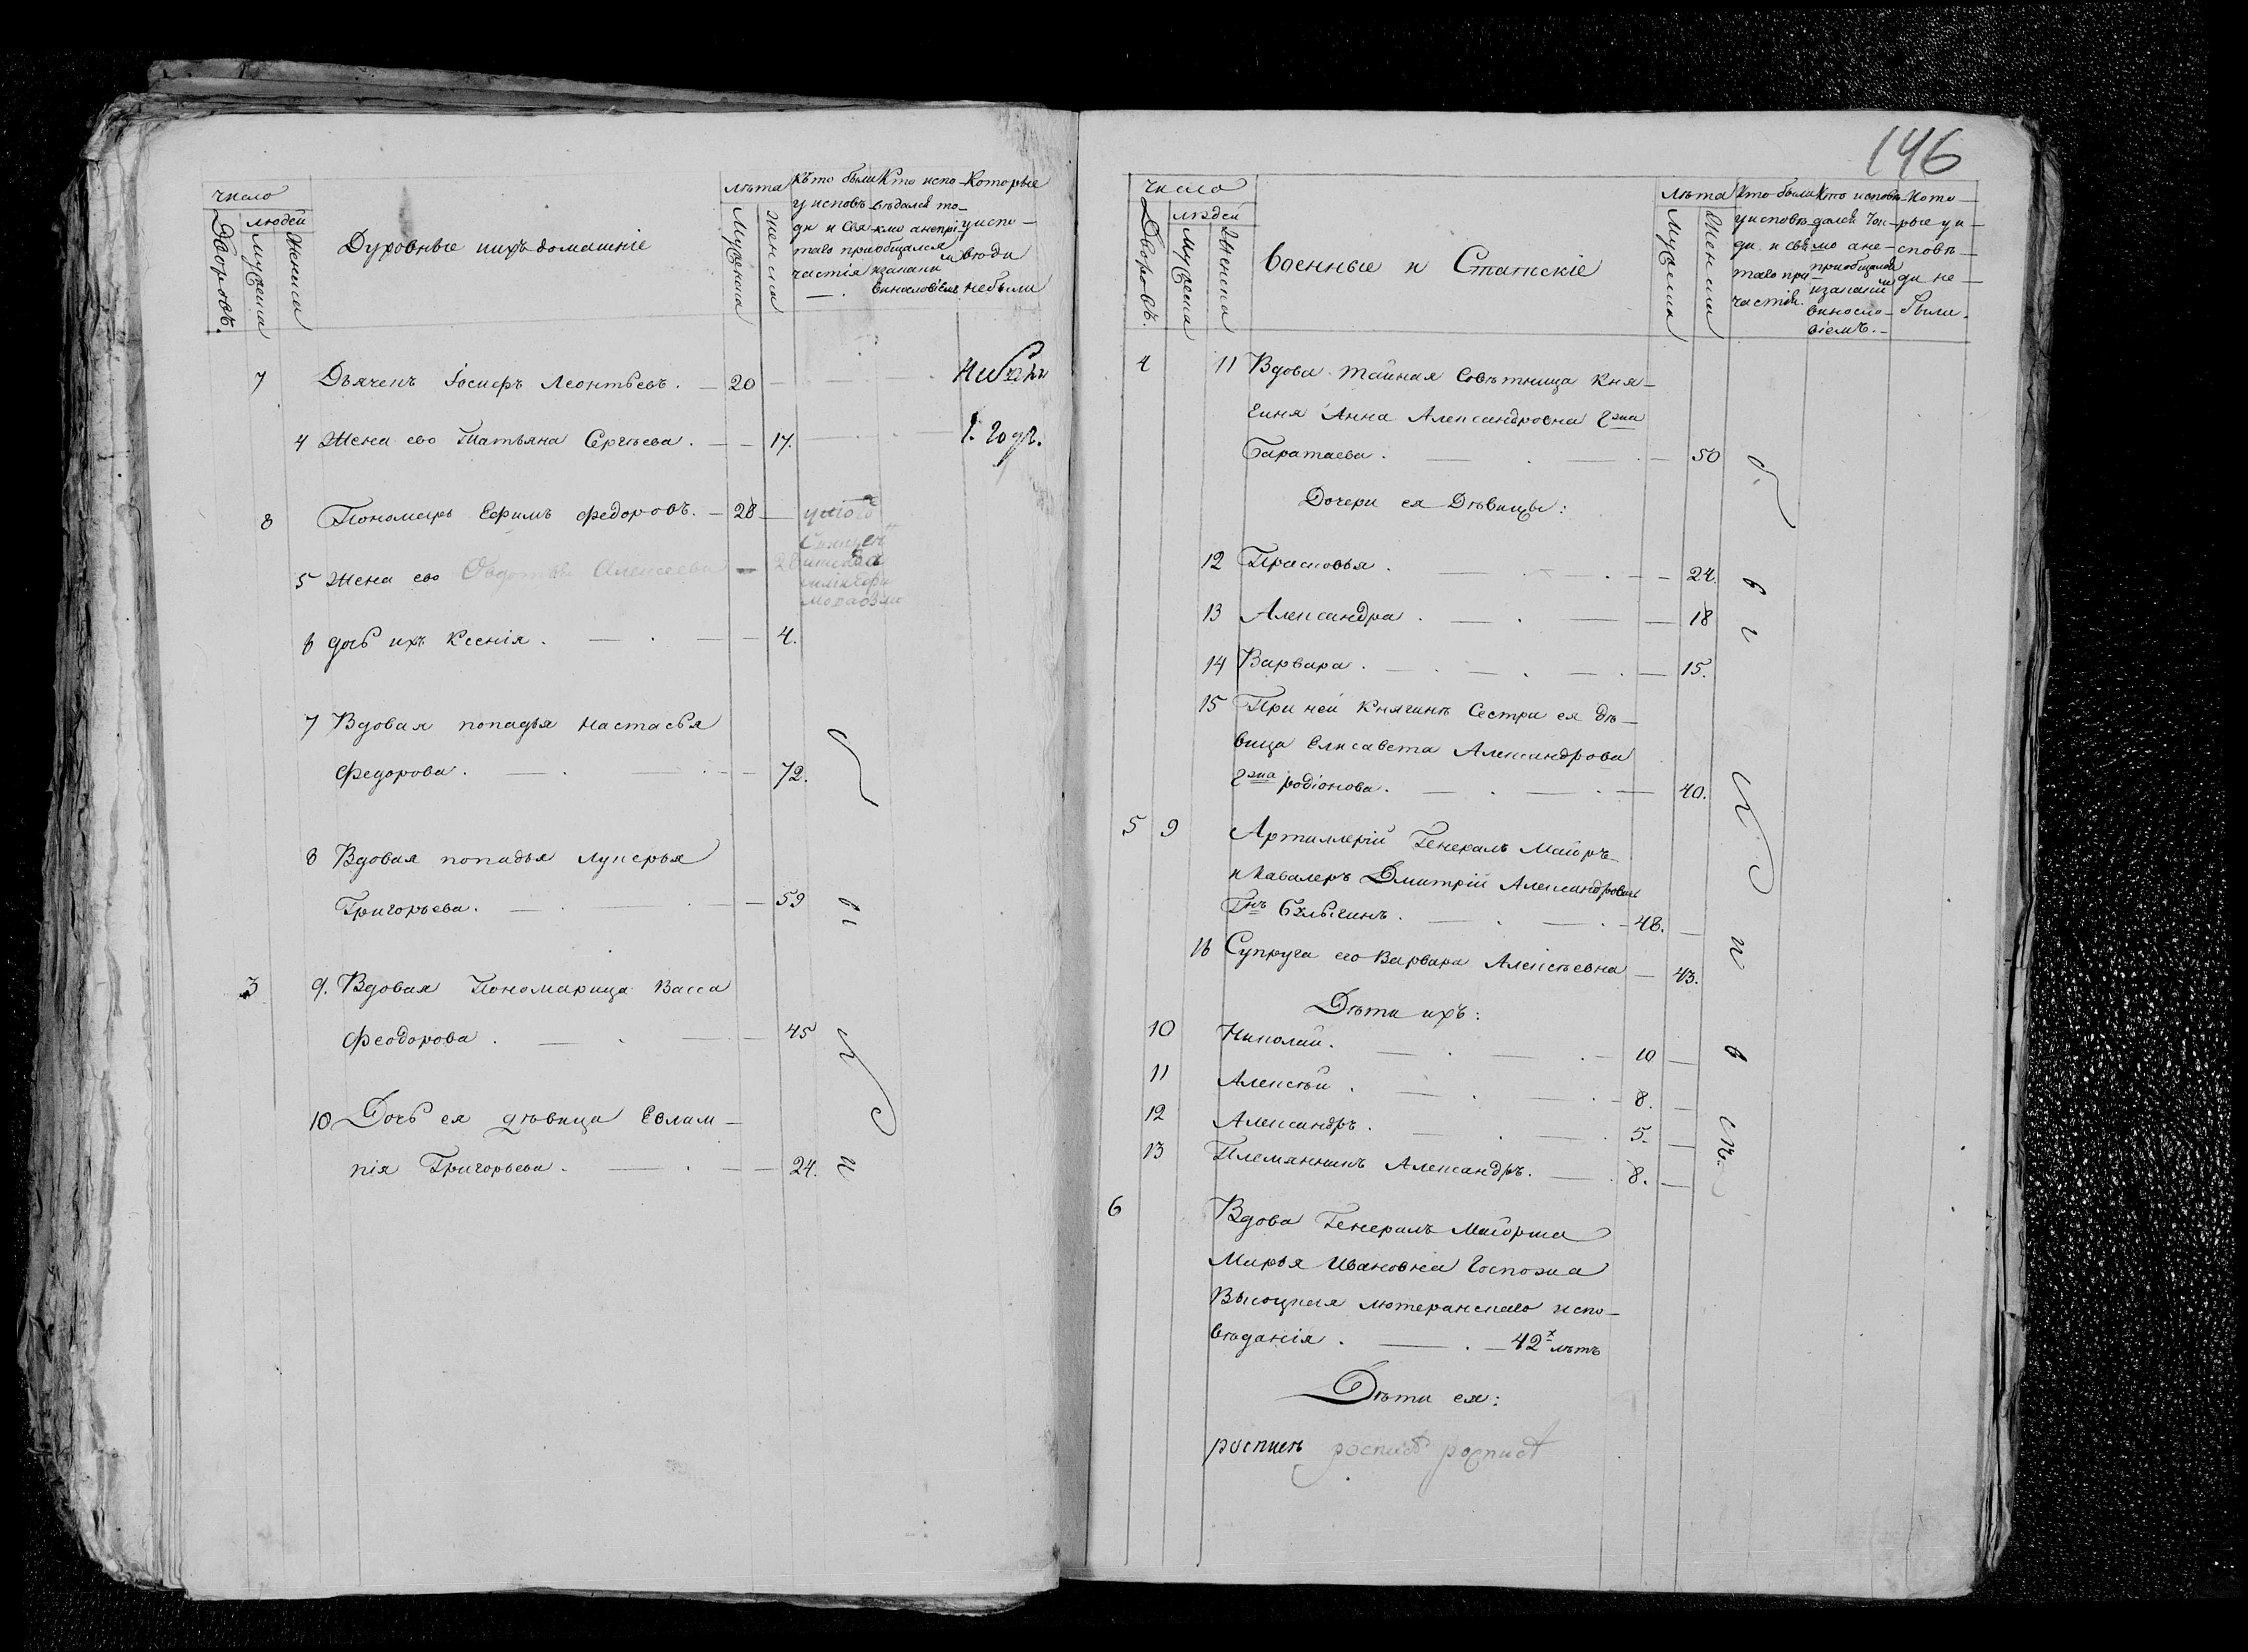 число
людей
Дворовъ.
Мужеска
Женска
Духовные ихъ домашніе
лѣта
Мужеска
женска
Кѣто были
у исповѣ-
ди и свя-
таго при-
частія
Кто испо-
вѣдался то-
кмо а непрі-
общался
и за каким
винословіем
Которые
у испо-
вѣди
небыли
7 Дьяченъ Іосифъ Леонтьевъ. — 20
4 Жена ево Татьяна Сергѣева. — 17.
1. годъ.
8 Пономарь Ефимъ Федоровъ. — 28
5 Жена ево Овдотья Алексеева — 28
6 дочь ихъ Ксенія. — 4.
7 Вдовая попадья Настасья
Федорова. — 72.
8 Вдовая попадья Лукерья
Григорьева. — 59
3 9. Вдовая Пономарица Васса
Феодорова. — 45
10 Дочь ея дѣвица Евлам-
пія Григорьева. — 24.
146
число
людей
Дворовъ.
Мужеска
Женска
Военные и Статскіе
лѣта
Мужеска
Женска
Кто были
у исповѣ-
ди и свя-
таго при-
частія.
Кто исповѣ-
дался ток-
мо а не-
приобщался
и за каким
виносло-
віемъ.-
Кото-
рые у и-
сповѣ-
ди не-
были.
4 11 Вдова тайная Совѣтница Кня-
гиня Анна Александровна Гжа
Баратаева. — 50
Дочери ея Дѣвицы:
12 Прасковья. — 24.
13 Александра. — 18
14 Варвара. — 15.
15 При ней Княгинѣ Сестра ея дѣ-
вица Елисавета Александрова
Гжа Родіонова. — 40.
5 9 Артиллеріи Генералъ Маіоръ
и Кавалеръ Дмитрій Александровичь
Гнъ Бхлыгинъ. — 48.
16 Супруга его Варвара Алексѣевна — 43.
Дѣти ихъ:
10 Николай. — 10
11 Алексѣй. — 8.
12 Александръ. — 5.
13 Племянникъ Александръ. — 8.
были
у
исповѣ
6 Вдова Генералъ Маіорша
Марья Ивановна Госпожа
Высоцкая лютеранскаго испо-
вѣданія. — 42х лѣтъ
Дѣти ея:
роспись роспись роспись